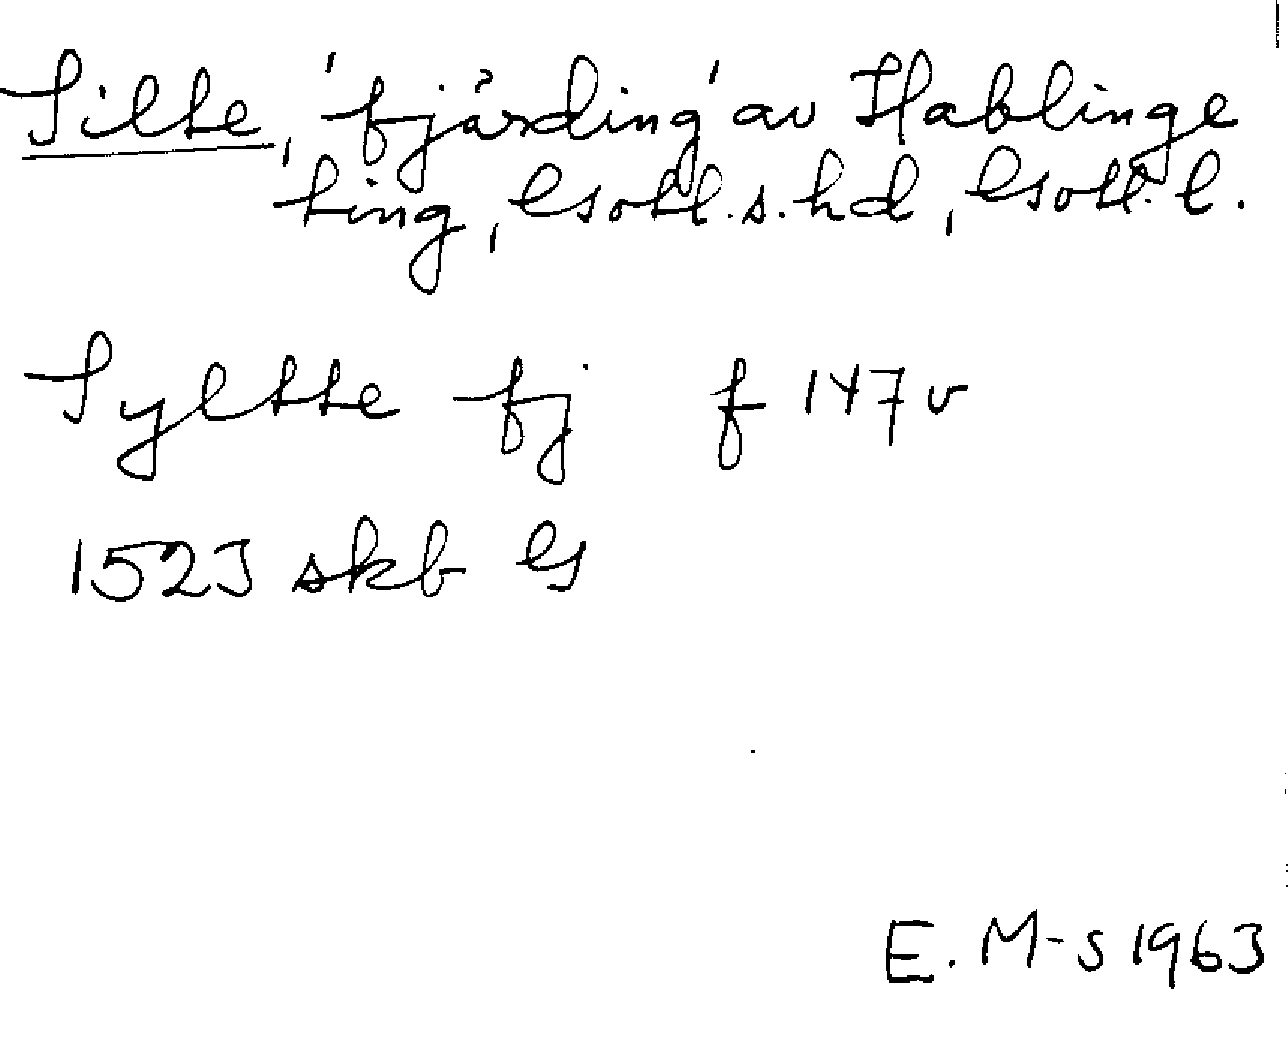 Silte, 'fjärding' av Hablinge
ting, Gotl. s. hd, Gotl. l.
Syltte fj f 147 v
1523 skb G
E. M-s 1963